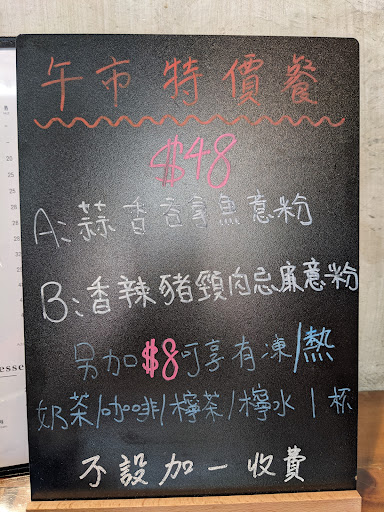 午市特價餐
$48
A:蒜香吞拿魚意粉
B:香辣豬頸肉忌廉意粉
另加$8可享有凍/熱
奶茶/咖啡/檸茶/檸水1杯
不設加一收費